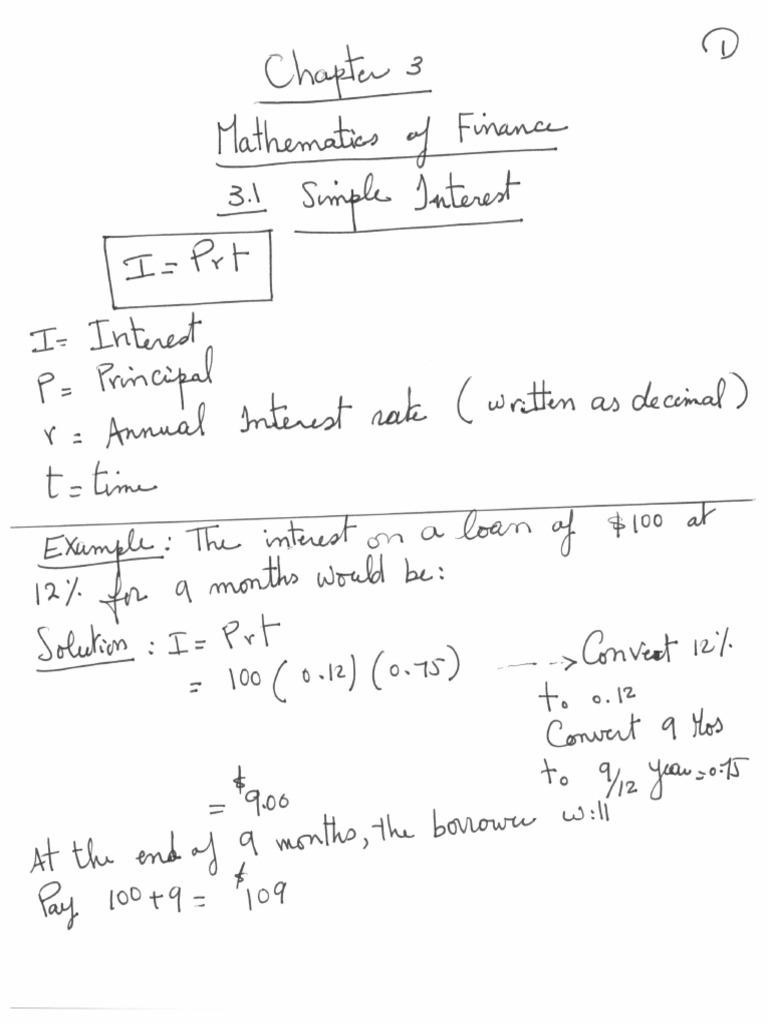 ①
Chapter 3
Mathematics of Finance
3.1 Simple Interest
I = Prt
I = Interest
P = Principal
r = Annual Interest rate (written as decimal)
t = time
Example: The interest on a loan of $100 at
12% for 9 months would be:
Solution: I = Prt
= 100 (0.12) (0.75) ---> Convert 12%
to 0.12
Convert 9 Mos
to 9/12 year = 0.75
= $9.00
At the end of 9 months, the borrower will
Pay 100 + 9 = $109